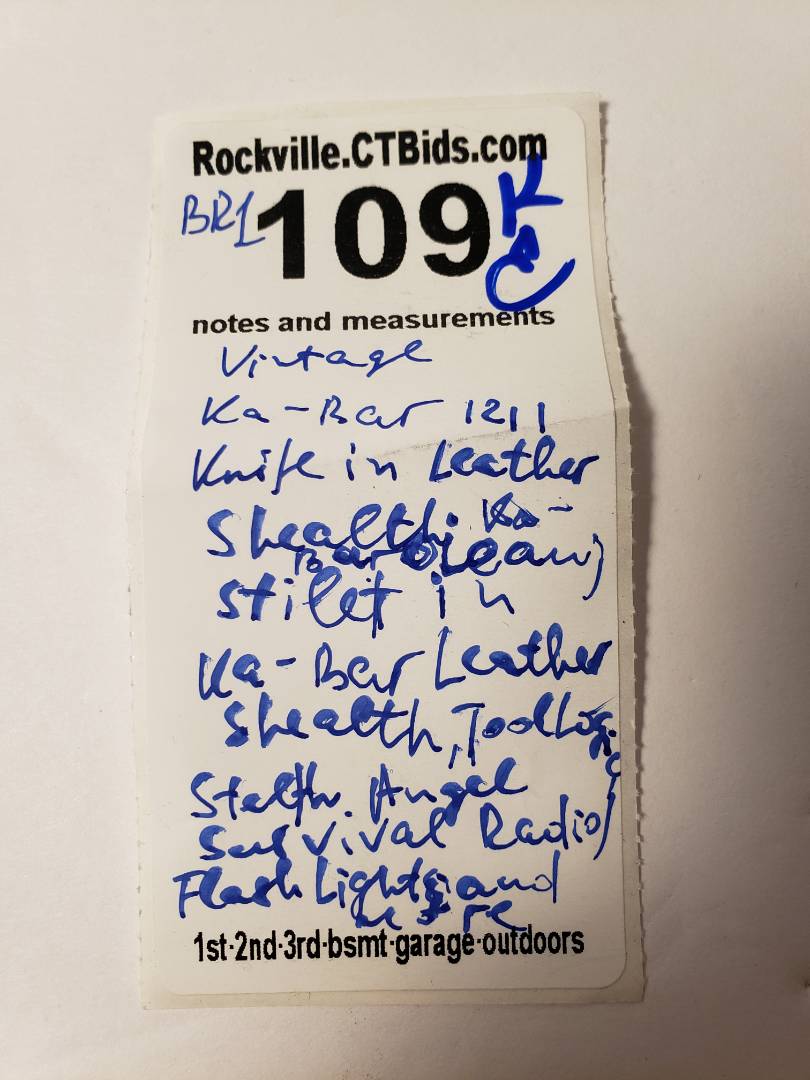 Rockville.CTBids.com
BR1 109 K
C
notes and measurements
Vintage
Ka-Bar 1211
Knife in Leather
Shealth. Ka-
Bar Olean,
stilet in
Ka-Bar Leather
Shealth, ToolLogic
Stelth Angel
Survival Radio/
Flash Lights and
more
1st·2nd·3rd·bsmt·garage·outdoors